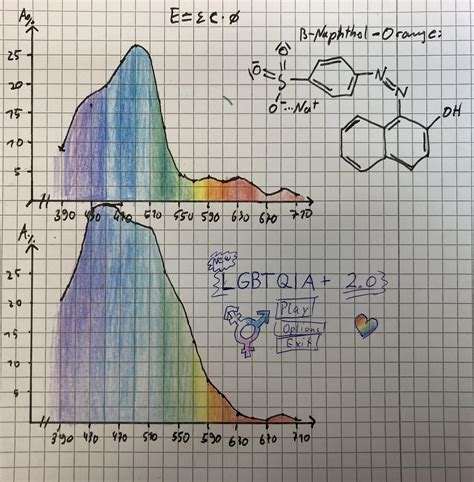 A%
E = ε c · ø
β-Naphthol-Orange:
25
20
15
10
5
390 430 470 510 550 590 630 670 710
O
O=S
O⁻...Na⁺
N=N
OH
A%
25
20
15
10
5
390 430 470 510 550 590 630 670 710
NEW
{LGBTQIA+ 2.0}
Play
Options
Exit